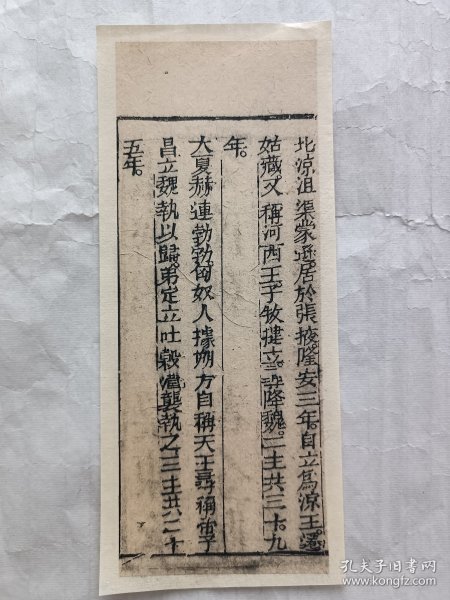 北涼沮渠蒙遜居於張掖隆安三年自立為涼王遷
姑臧又稱河西王子牧揵立 降魏二主共三十九
年
大夏赫連勃勃匈奴人據朔方自稱天王尋稱帝子
昌立魏執以歸弟定立吐谷渾襲執之三主共二十
五年
孔夫子旧书网
book.kongfz.com